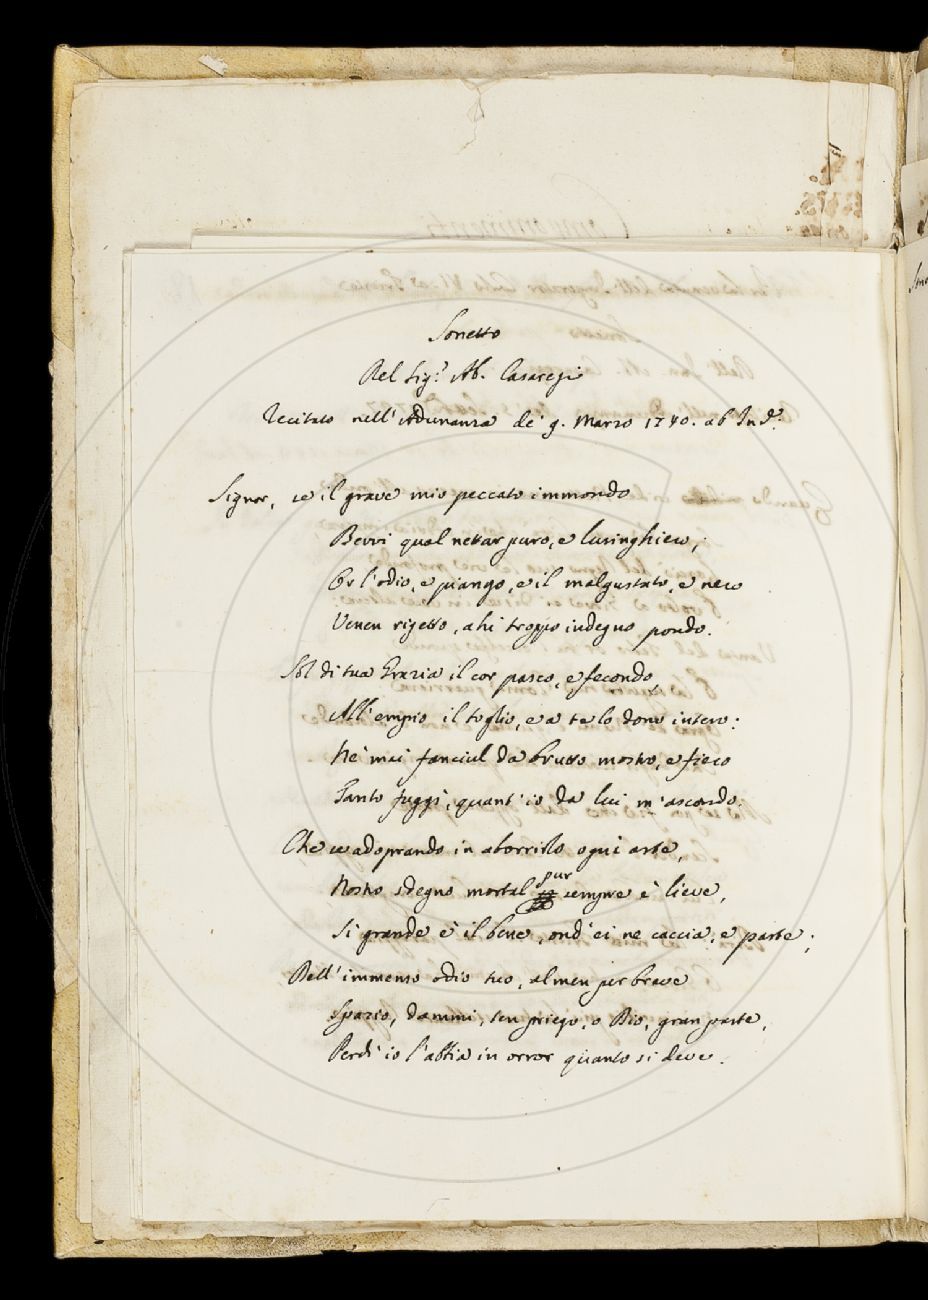 Sonetto
Del Sig.r Ab. Casaregi
Recitato nell'Adunanza de' 9. Marzo 1740. ab Ind.e
Signor, se il grave mio peccato immondo
Bevvi qual nettar puro, e lusinghiero;
Or l'odio, e piango, e il malgustato, e nero
Venen rigetto, ahi troppo indegno pondo.
Sol di tua Grazia il cor pasco, e fecondo,
All'empio il toglio, e a te lo dono intero:
Nè mai fanciul da brutto mostro, e fiero
Tanto fuggì, quant'io da lui m'ascondo.
Che se adoprando in aborrirlo ogni arte,
Nostro sdegno mortal pur sempre è lieve,
Sì grande è il bene, ond'ei ne caccia, e parte;
Dell'immenso odio tuo, almen per breve
Spazio, dammi, ten priego, o Dio, gran parte,
Perch'io l'abbia in orror quanto si deve.